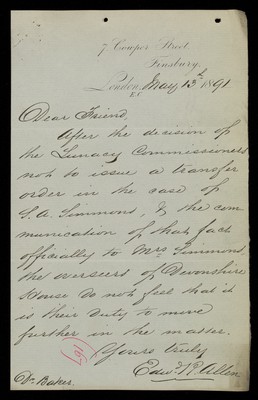 7 Cowper Street
Finsbury,
London, May 13th 1891
E.C.
Dear Friend,
After the decision of
the Lunacy Commissioners
not to issue a transfer
order in the case of
S. A. Simmons, & the com
munication of that fact
officially to Mrs Simmons,
the overseers of Devonshire
House do not feel that it
is their duty to move
further in the matter.
Yours truly
Edwd R. Allen
Dr Baker.